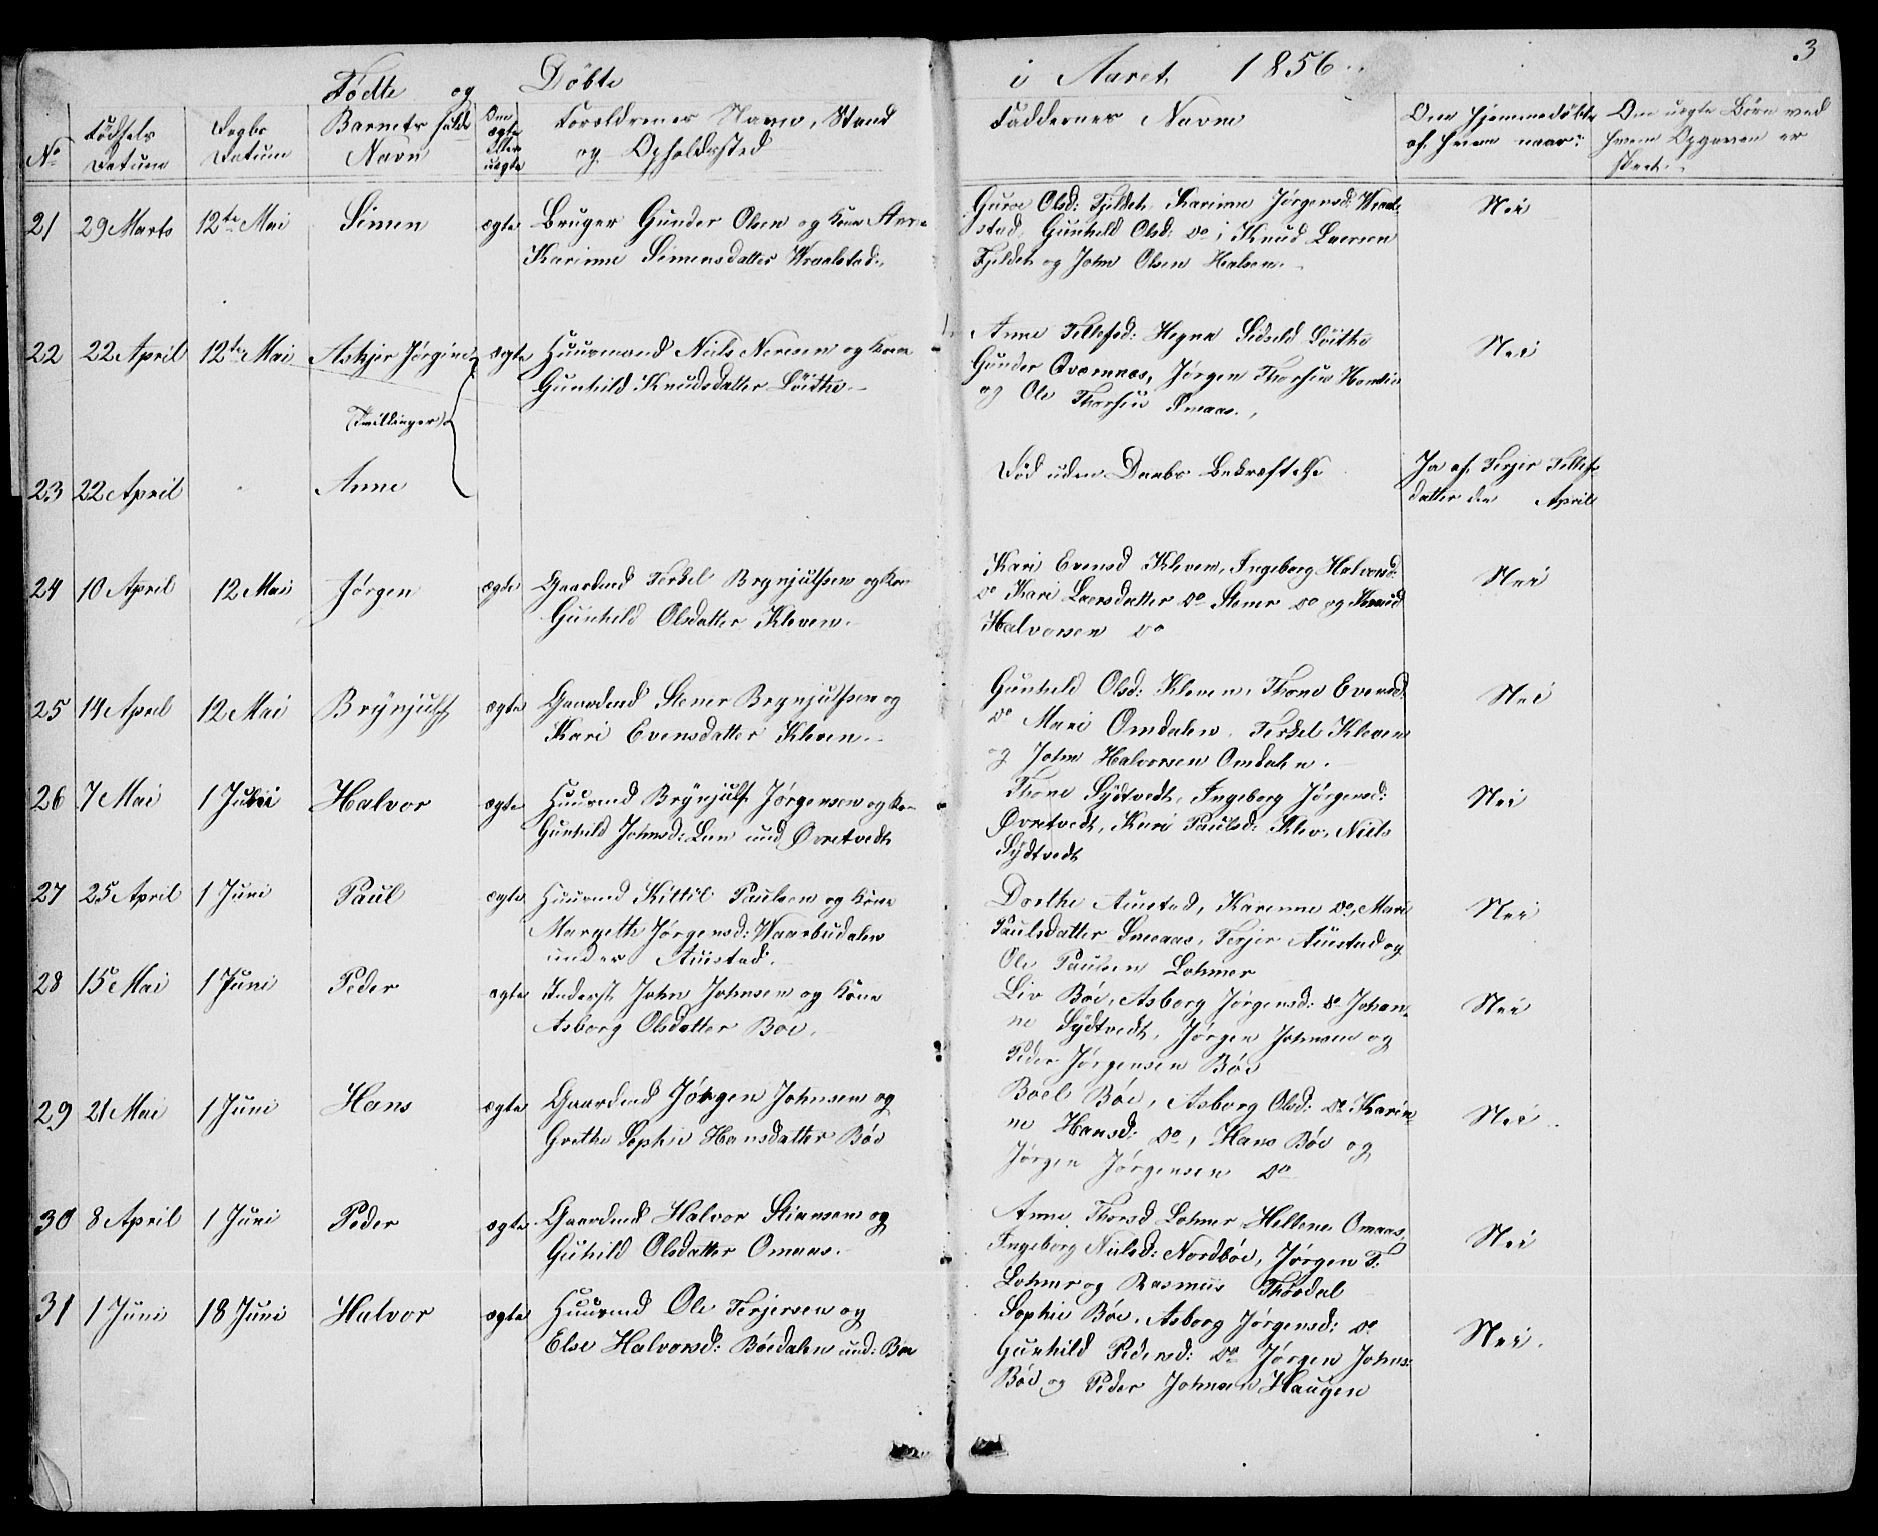 Fødte og Døbte i Aaret 1856. 3
No Fødsels Datum Daabs Datum Barnets fulde Navn Om ægte eller uægte Forældrenes Navn, Stand og Opholdssted Faddernes Navne Om hjemmedøbte af hvem naar: Om uægte Børn ved hvem Opgaven er skeet.
21 29 Marts 12te Mai Simen ægte Bruger Gunder Olsen og Kone Anne
Karinne Simensdatter Wraalstad.
Guroe Olsd: Fjeldet, Karinne Jørgensd: Wraal-
stad, Gunhild Olsd: Do; Knud Larsen
Fjeldet og John Olsen Halsen.
Nei
22 22 April 12te Mai Askjer Jørgine ægte Huusmand Niels Nersen og Kone
Gunhild Knudsdatter Løithe.
(Tvillinger)
Anne Tellefsd: Hegna Sidseld Løithe
Gunder Qværnnæs, Jørgen Thorsius
og Ole Thorsius Smaas.
Nei
23 22 April Anne
Død uden Daabs Bekræftelse
Ja af Terjer Tellefs-
datter den April
24 10 April 12 Mai Jørgen ægte Gaardmd Terkel Brynjulfsen og Kone
Gunhild Olsdatter Kleven.
Kari Evensd Kleven, Ingeborg Halvorsd:
Do Kari Larsdatter Do Stener Do og Knud
Halvorsen Do
Nei
25 14 April 12 Mai Brynjulf ægte Gaardmd Stener Brynjulfsen og
Kari Evensdatter Kleven.
Gunhild Olsd: Kleven, Thone Evensd:
Do Mari Omdalen, Terkel Kleven
og John Halvorsen Omdalen.
Nei
26 7 Mai 1 Juni Halvor ægte Huusmd Brynjulf Jørgensen og Kone
Gunhild Johnsd: Lien und Øvretvedt
Thone Sydtvedt, Ingeborg Jørgensd:
Øvretvedt, Kari Paulsd: Klev, Niels
Sydtvedt
Nei
27 25 April 1 Juni Paul ægte Huusmd Kittil Paulsen og Kone
Margethe Jørgensd: Waarbudalen
under Auestad.
Dorthe Auestad, Karenne Do, Mari
Paulsdatter Smaas, Terjer Auestad og
Ole Paulsen Lohner
Nei
28 15 Mai 1 Juni Peder ægte Inderst John Johnsen og Kone
Asborg Olsdatter Boe.
Liv Bøe, Asborg Jørgensd: Do Johan-
ne Sydtvedt, Jørgen Johnsen og
Peder Jørgensen Bøe
Nei
29 21 Mai 1 Juni Hans ægte Gaardmd Jørgen Johnsen og
Grethe Sophie Hansdatter Bøe
Boel Bøe, Asborg Olsd: Do Karin-
ne Hansd: Do, Hans Bøe og
Jørgen Jørgensen Do
Nei
30 8 April 1 Juni Peder ægte Gaardmd Halvor Stiansen og
Guhild Olsdatter Omaas.
Anne Thorsd Lohner Hellene Omaas,
Ingeborg Nielsd: Nordbøe, Jørgen T.
Lohner og Rasmus Thordal
Nei
31 1 Juni 18 Juni Halvor ægte Huusmd Ole Terjersen og
Else Halvorsd: Bøedalen und: Bøe
Sophie Bøe, Asborg Jørgensd: Do
Gunhild Pedersd: Do Jørgen Johns:
Bøe og Peder Johnsen Haugen
Nei.